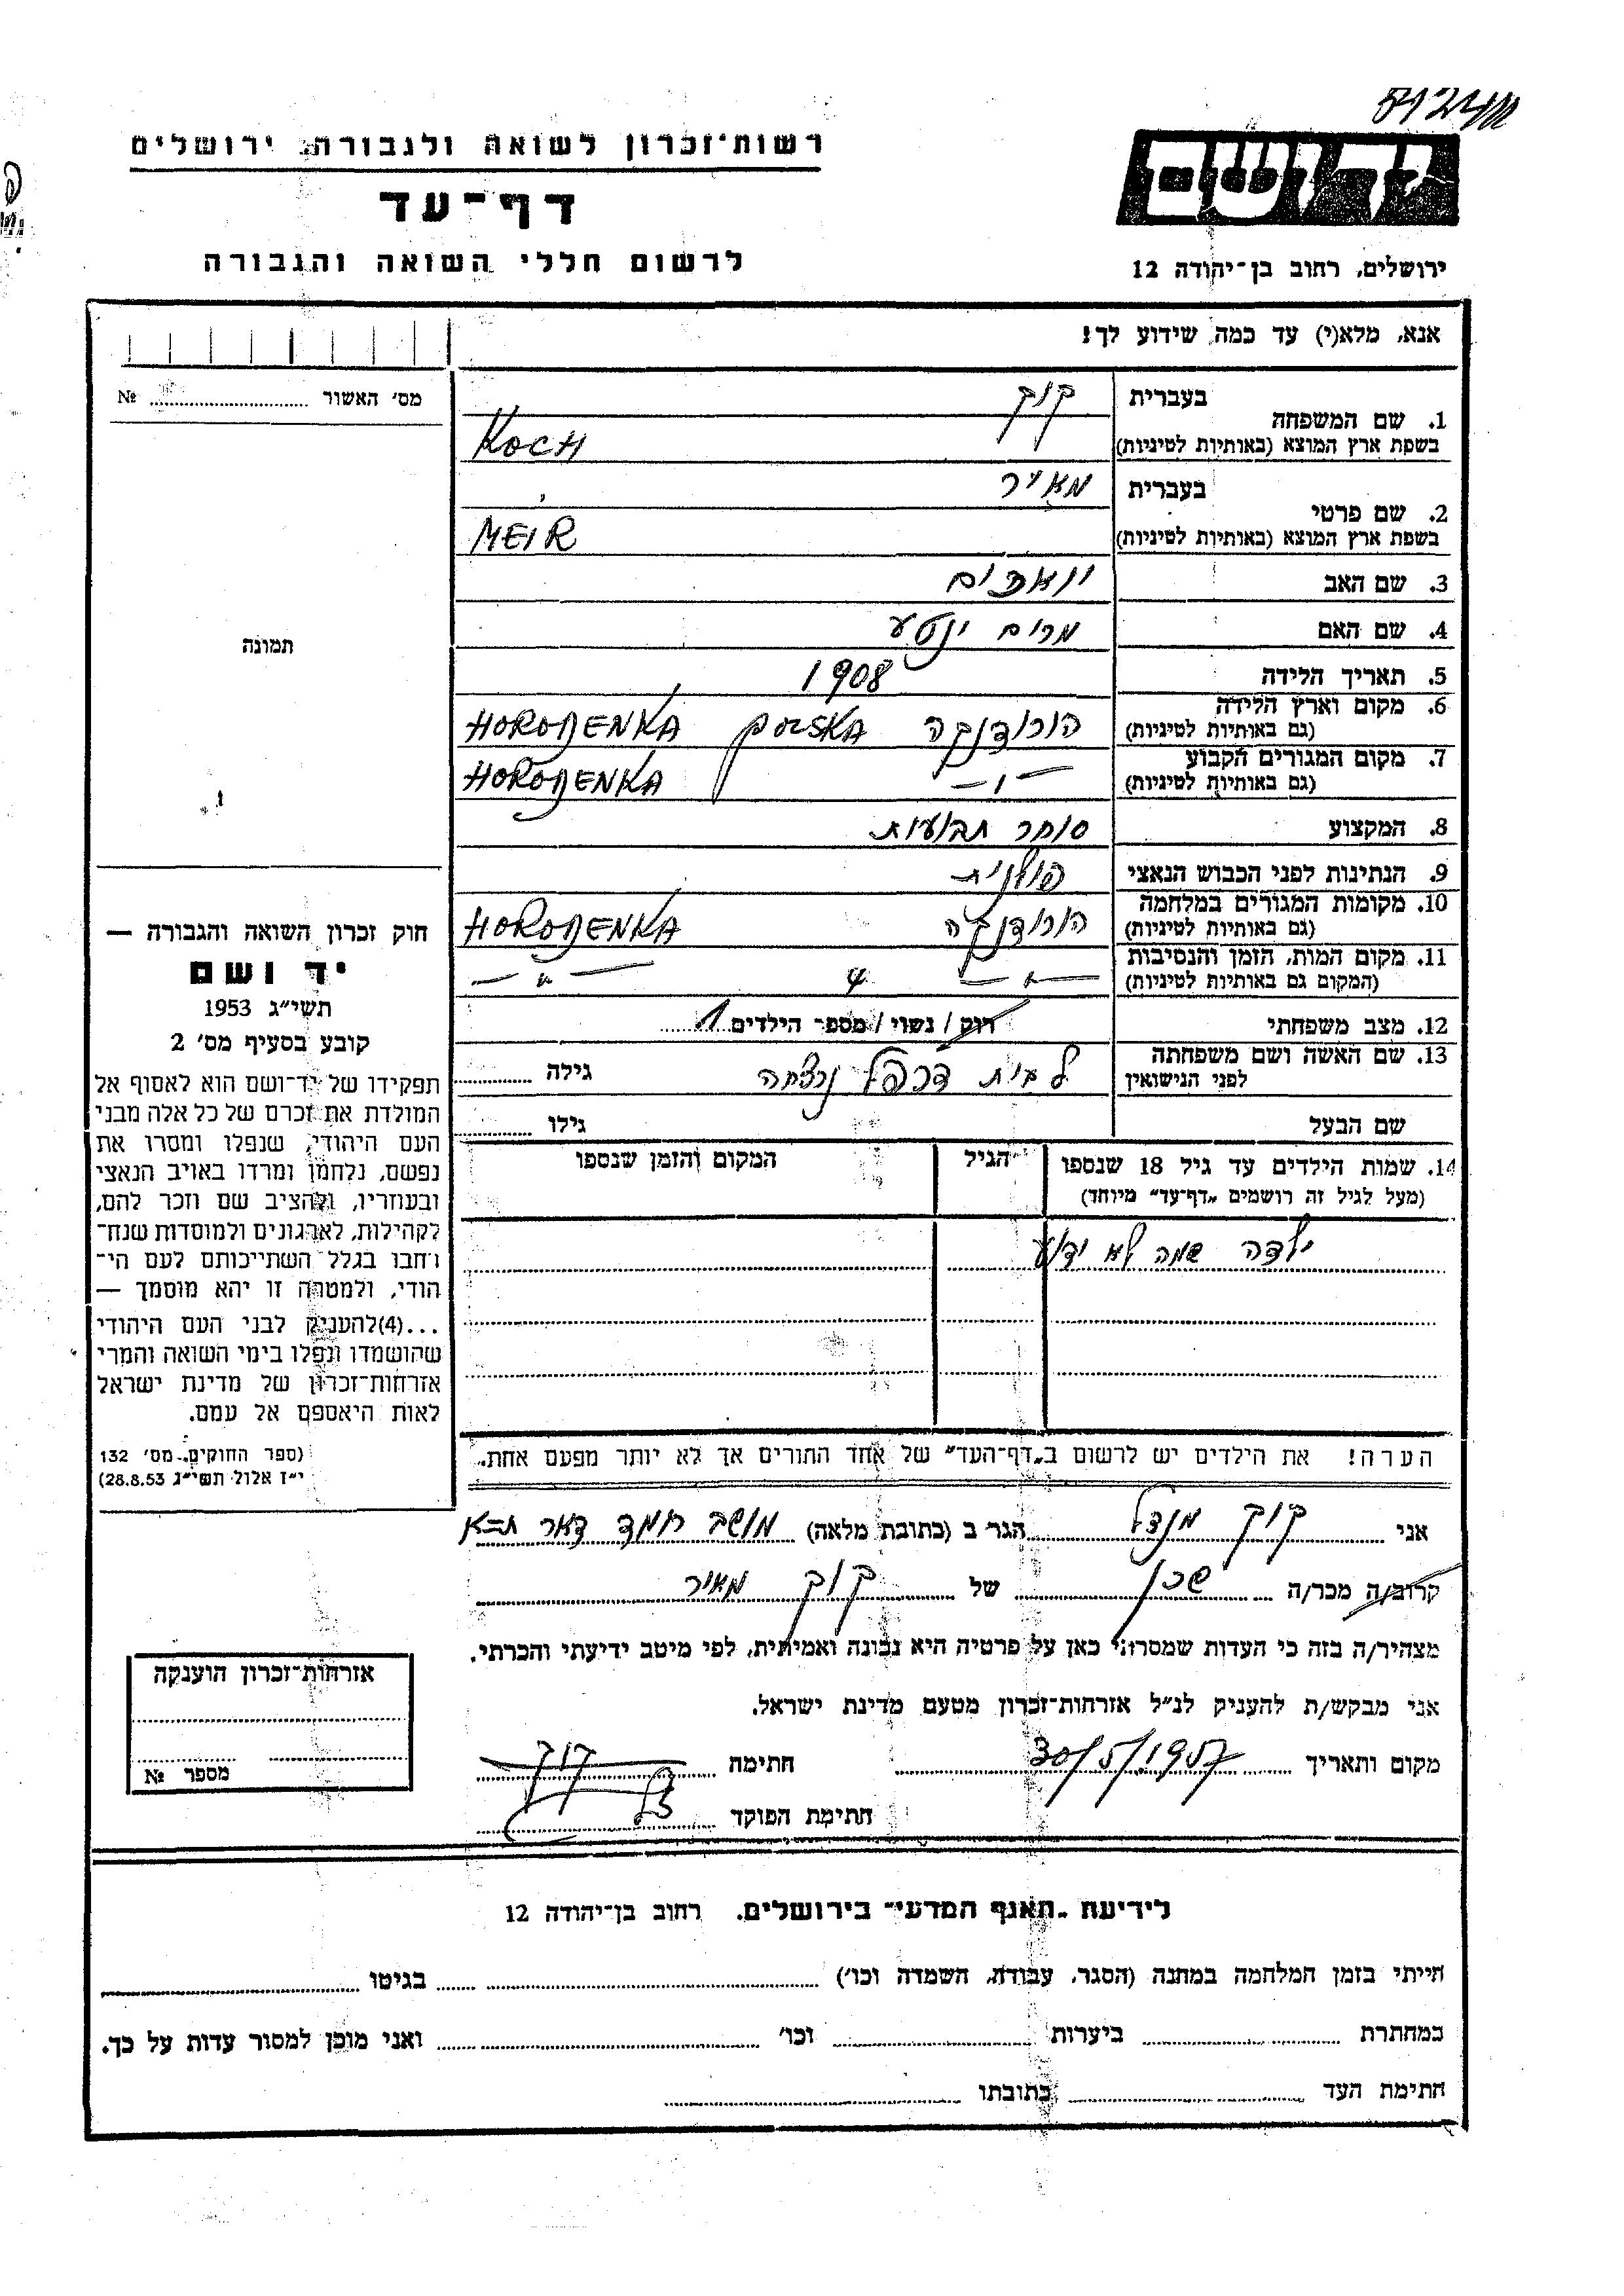 רשות־זכרון לשואה ולגבורה, ירושלים
דף־עד
לרשום חללי השואה והגבורה
יד ושם
ירושלים, רחוב בן־יהודה 12
אנא, מלא(י) עד כמה שידוע לך!
1. שם המשפחה
בעברית קוך
בשפת ארץ המוצא (באותיות לטיניות) KOCH
2. שם פרטי
בעברית מאיר
בשפת ארץ המוצא (באותיות לטיניות) MEIR
3. שם האב
4. שם האם מרים ינטע
5. תאריך הלידה 1908
6. מקום וארץ הלידה הורודנקה POLSKA HORODENKA
(גם באותיות לטיניות)
7. מקום המגורים הקבוע — " — HORODENKA
(גם באותיות לטיניות)
8. המקצוע סוחר תבואות
9. הנתינות לפני הכבוש הנאצי פולנית
10. מקומות המגורים במלחמה הורודנקה HORODENKA
(גם באותיות לטיניות)
11. מקום המות, הזמן והנסיבות — " — — " —
(המקום גם באותיות לטיניות)
12. מצב משפחתי רוק / נשוי / מספר הילדים 1
13. שם האשה ושם משפחתה לבית
לפני הנישואין גילה
שם הבעל גילו
14. שמות הילדים עד גיל 18 שנספו הגיל המקום והזמן שנספו
(מעל לגיל זה רושמים „דף־עד" מיוחד)
ילדה שמה לא ידוע
הערה! את הילדים יש לרשום ב„דף־העד" של אחד ההורים אך לא יותר מפעם אחת.
מס׳ האשור № 
תמונה
חוק זכרון השואה והגבורה —
יד ושם
תשי״ג 1953
קובע בסעיף מס׳ 2
תפקידו של יד־ושם הוא לאסוף אל
המולדת את זכרם של כל אלה מבני
העם היהודי, שנפלו ומסרו את
נפשם, נלחמו ומרדו באויב הנאצי
ובעוזריו, ולהציב שם וזכר להם,
לקהילות, לארגונים ולמוסדות שנח־
רבו בגלל השתייכותם לעם הי־
הודי, ולמטרה זו יהא מוסמך —
...(4)להעניק לבני העם היהודי
שהושמדו ונפלו בימי השואה והמרי
אזרחות־זכרון של מדינת ישראל
לאות היאספם אל עמם.
(ספר החוקים, מס׳ 132
י״ז אלול תשי״ג 28.8.53)
אני קוך מנדל הגר ב (כתובת מלאה) מושב
קרוב/ה מכר/ה שכן של קוך מאיר
מצהיר/ה בזה כי העדות שמסרתי כאן על פרטיה היא נכונה ואמיתית, לפי מיטב ידיעתי והכרתי.
אני מבקש/ת להעניק לנ״ל אזרחות־זכרון מטעם מדינת ישראל.
מקום ותאריך 30/5/1957 חתימה קוך
חתימת הפוקד
אזרחות־זכרון הוענקה
מספר №
לידיעת „האגף המדעי" בירושלים, רחוב בן־יהודה 12
הייתי בזמן המלחמה במחנה (הסגר, עבודה, השמדה וכו׳) בגיטו
במחתרת ביערות וכו׳ ואני מוכן למסור עדות על כך.
חתימת העד כתובתו